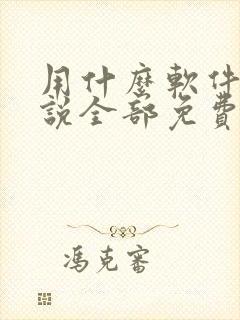 用什麼軟件
說全部免費
馮克審